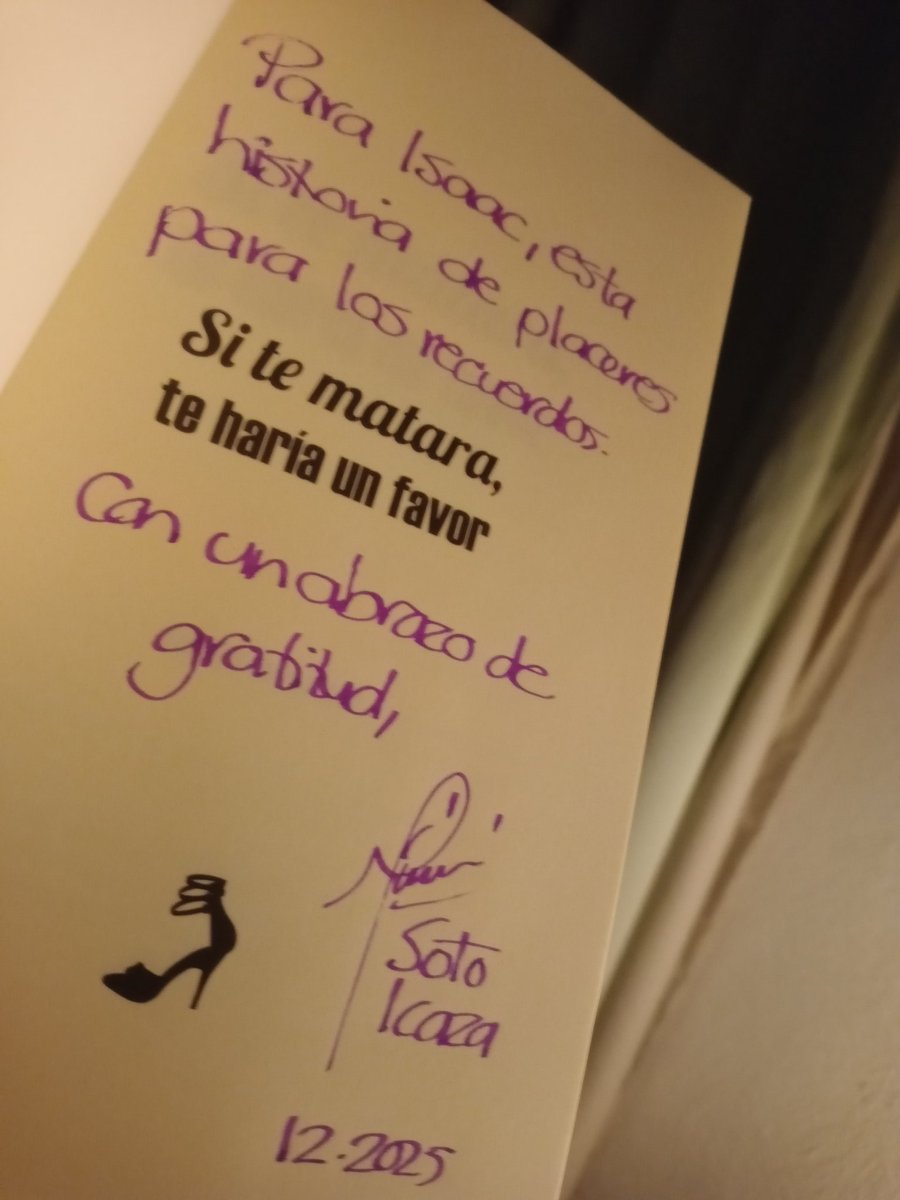 Para Isaac, esta
historia de placeres
para los recuerdos.
Si te matara,
te haría un favor
Con un abrazo de
gratitud,
Soto
Icaza
12.2025